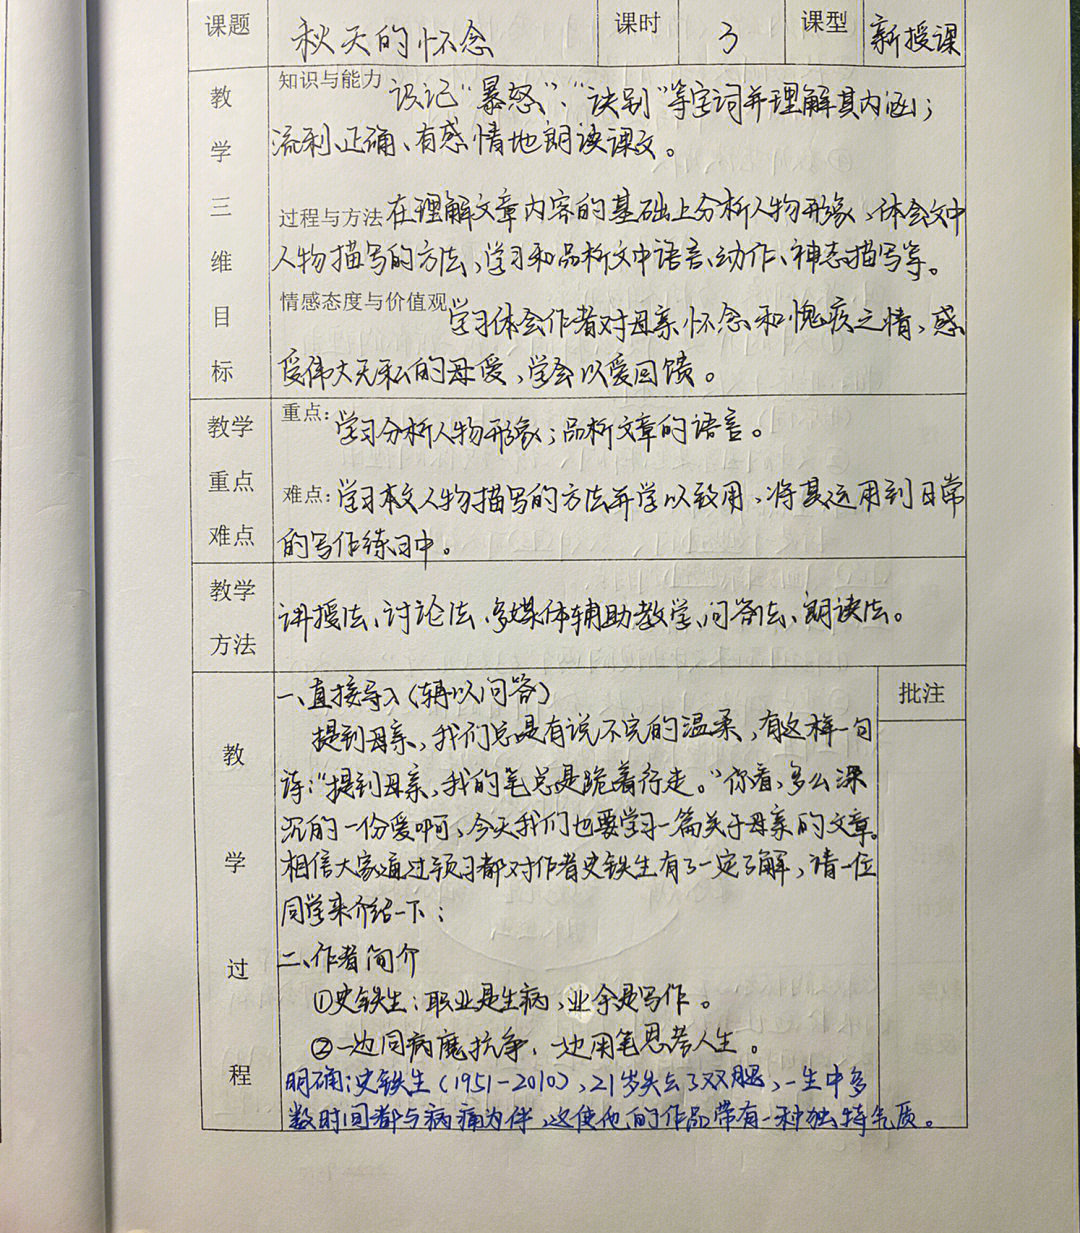 课题 秋天的怀念 课时 3 课型 新授课
教学三维目标
知识与能力 识记“暴怒”、“诀别”等字词并理解其内涵；
流利、正确、有感情地朗读课文。
过程与方法 在理解文章内容的基础上分析人物形象、体会文中
人物描写的方法、学习和品析文中语言、动作、神态描写等。
情感态度与价值观 学习体会作者对母亲怀念和愧疚之情、感
受伟大无私的母爱，学会以爱回馈。
教学重点难点
重点：学习分析人物形象；品析文章的语言。
难点：学习本文人物描写的方法并学以致用、将其运用到日常
的写作练习中。
教学方法
讲授法、讨论法、多媒体辅助教学、问答法、朗读法。
教学过程
批注
一、直接导入（辅以问答）
提到母亲，我们总是有说不完的温柔，有这样一句
诗：“提到母亲，我的笔总是跪着行走。”你看，多么深
沉的一份爱啊，今天我们也要学习一篇关于母亲的文章。
相信大家通过预习都对作者史铁生有了一定了解，请一位
同学来介绍一下：
二、作者简介
①史铁生：职业是生病，业余是写作。
②一边同病魔抗争，一边用笔思考人生。
明确：史铁生（1951-2010），21岁失去了双腿，一生中多
数时间都与病痛为伴，这使他的作品带有一种独特气质。